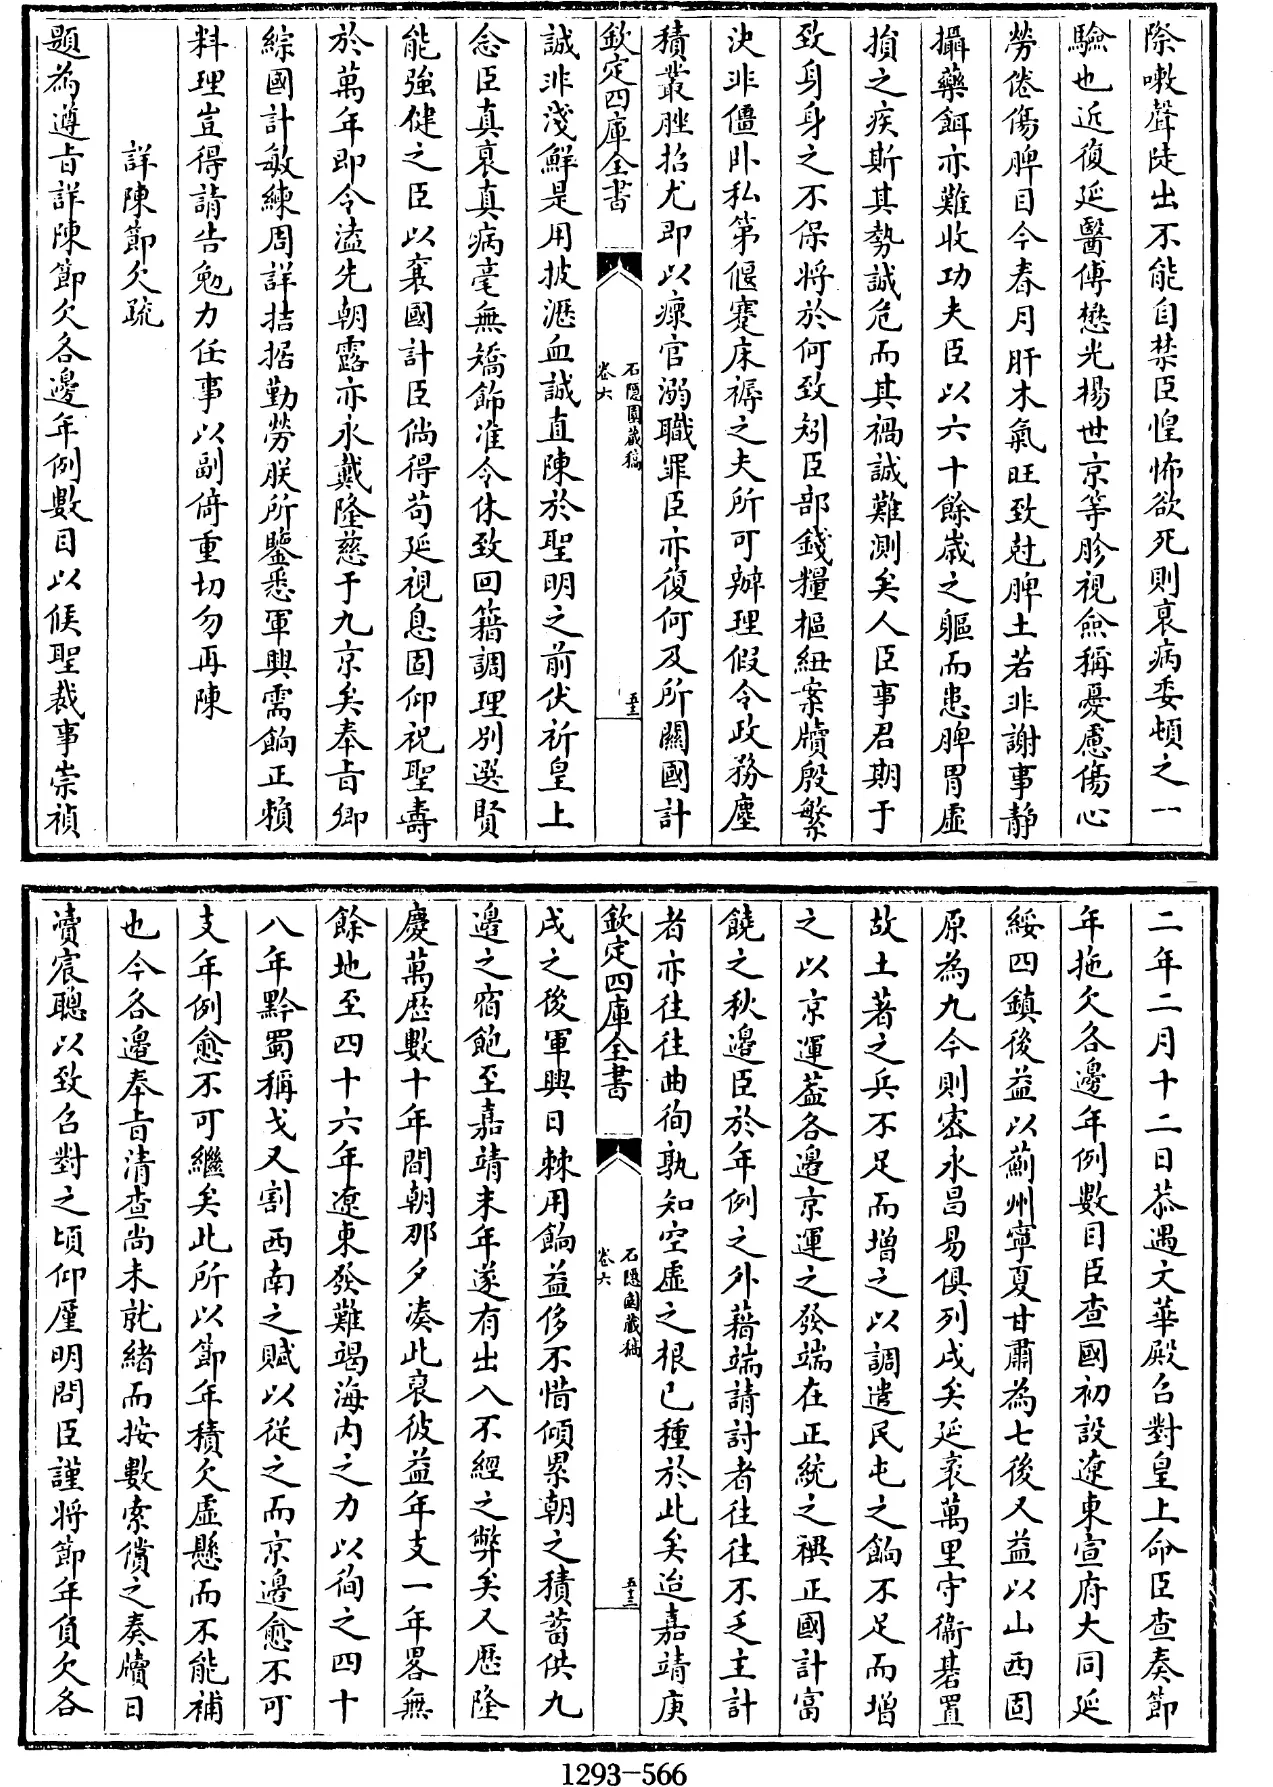 除嗽聲陡出不能自禁臣惶怖欲死則衰病委頓之一
驗也近復延醫傅懋光楊世京等胗視僉稱憂慮傷心
勞倦傷脾目今春月肝木氣旺致尅脾土若非謝事静
攝藥餌亦難收功夫臣以六十餘歲之軀而患脾胃虛
損之疾斯其勢誠危而其禍誠難測矣人臣事君期于
致身身之不保將於何致矧臣部錢糧樞紐案牘殷繁
決非僵卧私第偃蹇床褥之夫所可辦理假令政務塵
積叢脞招尤即以瘝官溺職罪臣亦復何及所關國計
欽定四庫全書
石隱園藏稿
卷六
五三
誠非淺鮮是用披瀝血誠直陳於聖明之前伏祈皇上
念臣真衰真病毫無矯飾准令休致回籍調理別選賢
能強健之臣以襄國計臣倘得苟延視息固仰祝聖壽
於萬年即令溘先朝露亦永戴隆慈于九京矣奉㫖卿
綜國計敏練周詳拮据勤勞朕所鑒悉軍興需餉正賴
料理豈得請告勉力任事以副倚重切勿再陳
詳陳節欠疏
題為遵㫖詳陳節欠各邊年例數目以俟聖裁事崇禎
二年二月十二日恭遇文華殿召對皇上命臣查奏節
年拖欠各邊年例數目臣查國初設遼東宣府大同延
綏四鎮後益以薊州寧夏甘肅為七後又益以山西固
原為九今則密永昌易俱列戍矣延袤萬里守衞碁置
故土著之兵不足而增之以調遣民屯之餉不足而增
之以京運葢各邊京運之發端在正統之禩正國計富
饒之秋邊臣於年例之外藉端請討者往往不乏主計
者亦往往曲徇孰知空虛之根已種於此矣迨嘉靖庚
欽定四庫全書
石隱園藏稿
卷六
五三
戍之後軍興日棘用餉益侈不惜傾累朝之積蓄供九
邊之宿飽至嘉靖末年遂有出入不經之弊矣又歷隆
慶萬歷數十年間朝那夕湊此裒彼益年支一年畧無
餘地至四十六年遼東發難竭海内之力以徇之四十
八年黔蜀稱戈又割西南之賦以從之而京邊愈不可
支年例愈不可繼矣此所以節年積欠虛懸而不能補
也今各邊奉㫖清查尚未就緒而按數索償之奏牘日
瀆宸聰以致召對之頃仰厪明問臣謹將節年負欠各
1293-566